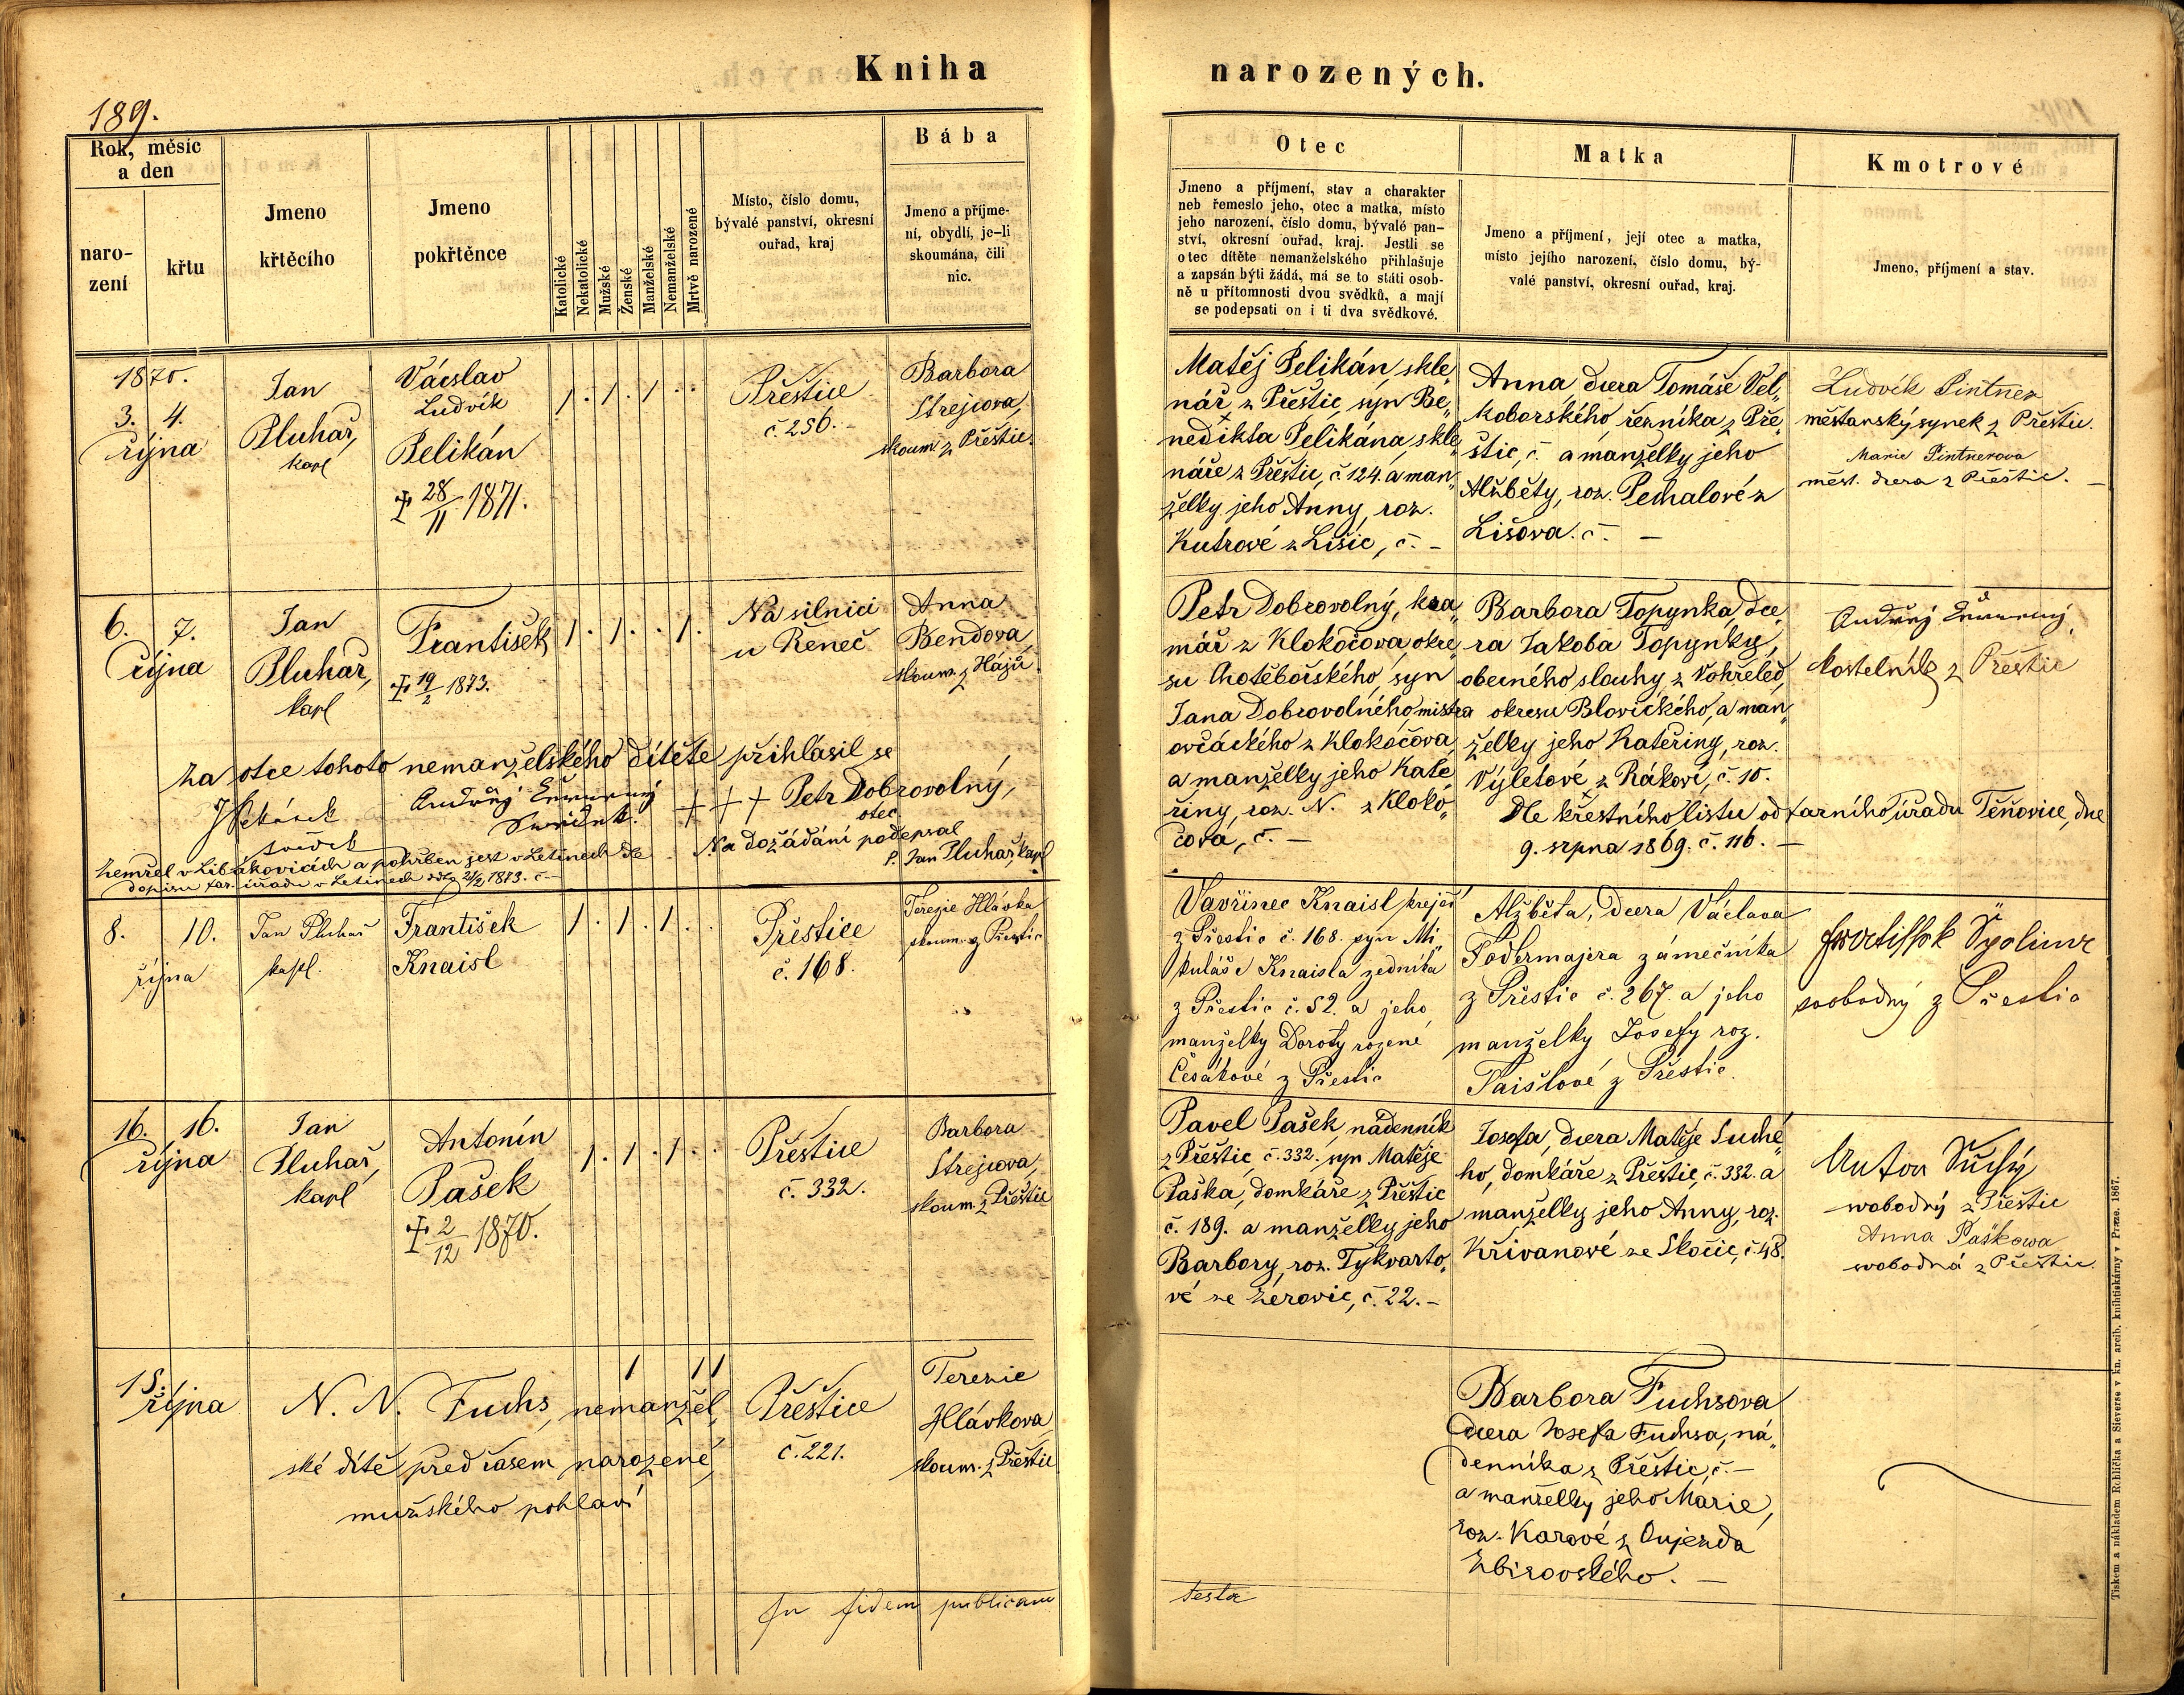 Kniha narozených.
189.
Rok, měsíc
a den
naro-
zení
křtu
Jmeno
křtěcího
Jmeno
pokřtěnce
Katolické
Nekatolické
Mužské
Ženské
Manželské
Nemanželské
Mrtvě narozené
Místo, číslo domu,
bývalé panství, okresní
ouřad, kraj
Bába
Jmeno a příjme-
ní, obydlí, je-li
skoumána, čili
nic.
Otec
Jmeno a příjmení, stav a charakter
neb řemeslo jeho, otec a matka, místo
jeho narození, číslo domu, bývalé pan-
ství, okresní ouřad, kraj. Jestli se
otec dítěte nemanželského přihlašuje
a zapsán býti žádá, má se to státi osob-
ně u přítomnosti dvou svědků, a mají
se podepsati on i ti dva svědkové.
Matka
Jmeno a příjmení, její otec a matka,
místo jejího narození, číslo domu, bý-
valé panství, okresní ouřad, kraj.
Kmotrové
Jmeno, příjmení a stav.
1870.
3. 4.
října
Jan
Pluhař,
kapl
Vácslav
Ludvík
Pelikán
28/11 1871.
1 . 1 . 1 . .
Přeštice
č. 256. -
Barbora
Strejcova,
skoum. z Přeštic
Matěj Pelikán, skle„
nář z Přeštic, syn Be„
nedikta Pelikána, skle„
náře z Přeštic, č. 124. a man„
želky jeho Anny, roz.
Kutrové z Lišic, č. -
Anna, dcera Tomáše Vel„
koborského řezníka z Pře„
štic, č. a manželky jeho
Alžběty, roz. Pechalové z
Lišova. č. -
Ludvík Pintner
měštanský synek z Přeštic.
Marie Pintnerova
měst. dcera z Přeštic. -
6. 7.
října
Jan
Pluhař,
kapl
František
19/2 1873.
1 . 1 . . 1 .
Na silnici
u Řeneč
Anna
Bendova
skoum. z Hájů
Petr Dobrovolný, kra„
mář z Klokočova, okre„
su Chotěbořského, syn
Jana Dobrovolného, mistra
ovčáckého z Klokočova
a manželky jeho Kate„
řiny, roz. N. z Kloko„
čova, č. -
Barbora Topynka, dce„
ra Jakoba Topynky,
obecného slouhy z Vokřeled,
okresu Blovického, a man„
želky jeho Kateřiny, roz.
Výletové z Rákové, č. 10.
Dle křestního listu od farního úřadu Těňovice, dne
9. srpna 1869. č. 116. -
Andřej
kostelník z Přeštic
Za otce tohoto nemanželského dítěte přihlásil se
Andřej
svědek
+ + + Petr Dobrovolný,
otec
svědek
Na dožádání podepsal
P. Jan Pluhař, kapl
Zemřel v Libákovicích a pohřben jest v Letinech dle
dopisu far. úřadu v Letinech ddto 21/2 1873. č -
8. 10.
října
Jan Pluhař
kapl.
František
Knaisl
1 . 1 . 1 . .
Přeštice
č. 168.
Terezie Hlávka
skoum. z Přeštic
Vavřinec Knaisl krejčí
z Přeštic č. 168. syn Mi„
kuláše Knaisla zedníka
z Přeštic č. 52. a jeho
manželky Doroty rozené
Češákové z Přeštic
Alžběta, dcera Václava
Fodermajera zámečníka
z Přeštic č. 267. a jeho
manželky Josefy roz.
Paištové z Přeštic.
svobodný z Přeštic
16. 16.
října
Jan
Pluhař,
kapl
Antonín
Pašek
2/12 1870.
1 . 1 . 1 . .
Přeštice
č. 332.
Barbora
Strejcova,
skoum. z Přeštic
Pavel Pašek, nádenník
z Přeštic, č. 332. syn Matěje
Paška, domkáře z Přeštic
č. 189. a manželky jeho
Barbory, roz. Tykvarto„
vé ze Žerovic, č. 22. -
Josefa, dcera Matěje Suché„
ho, domkáře z Přeštic, č. 332. a
manželky jeho Anny, roz.
Křivanové ze Skočic, č. 48.
Anton Suchý
wobodný z Přeštic
Anna Paškowa
wobodná z Přeštic.
15.
října
N. N. Fuchs, nemanžel„
ské dítě před časem narozené,
mužského pohlaví
1 1 1
Přeštice
č. 221.
Terezie
Hlávkova
skoum. z Přeštic
Barbora Fuchsova
dcera Josefa Fuchsa, ná„
denníka z Přeštic, č. -
a manželky jeho Marie,
roz. Karové z Oujezda
Zbirovského. -
In fidem publicam
testa
Tiskem a nákladem Rohlíčka a Sieverse v kn. arcib. knihtiskárny v Praze. 1867.